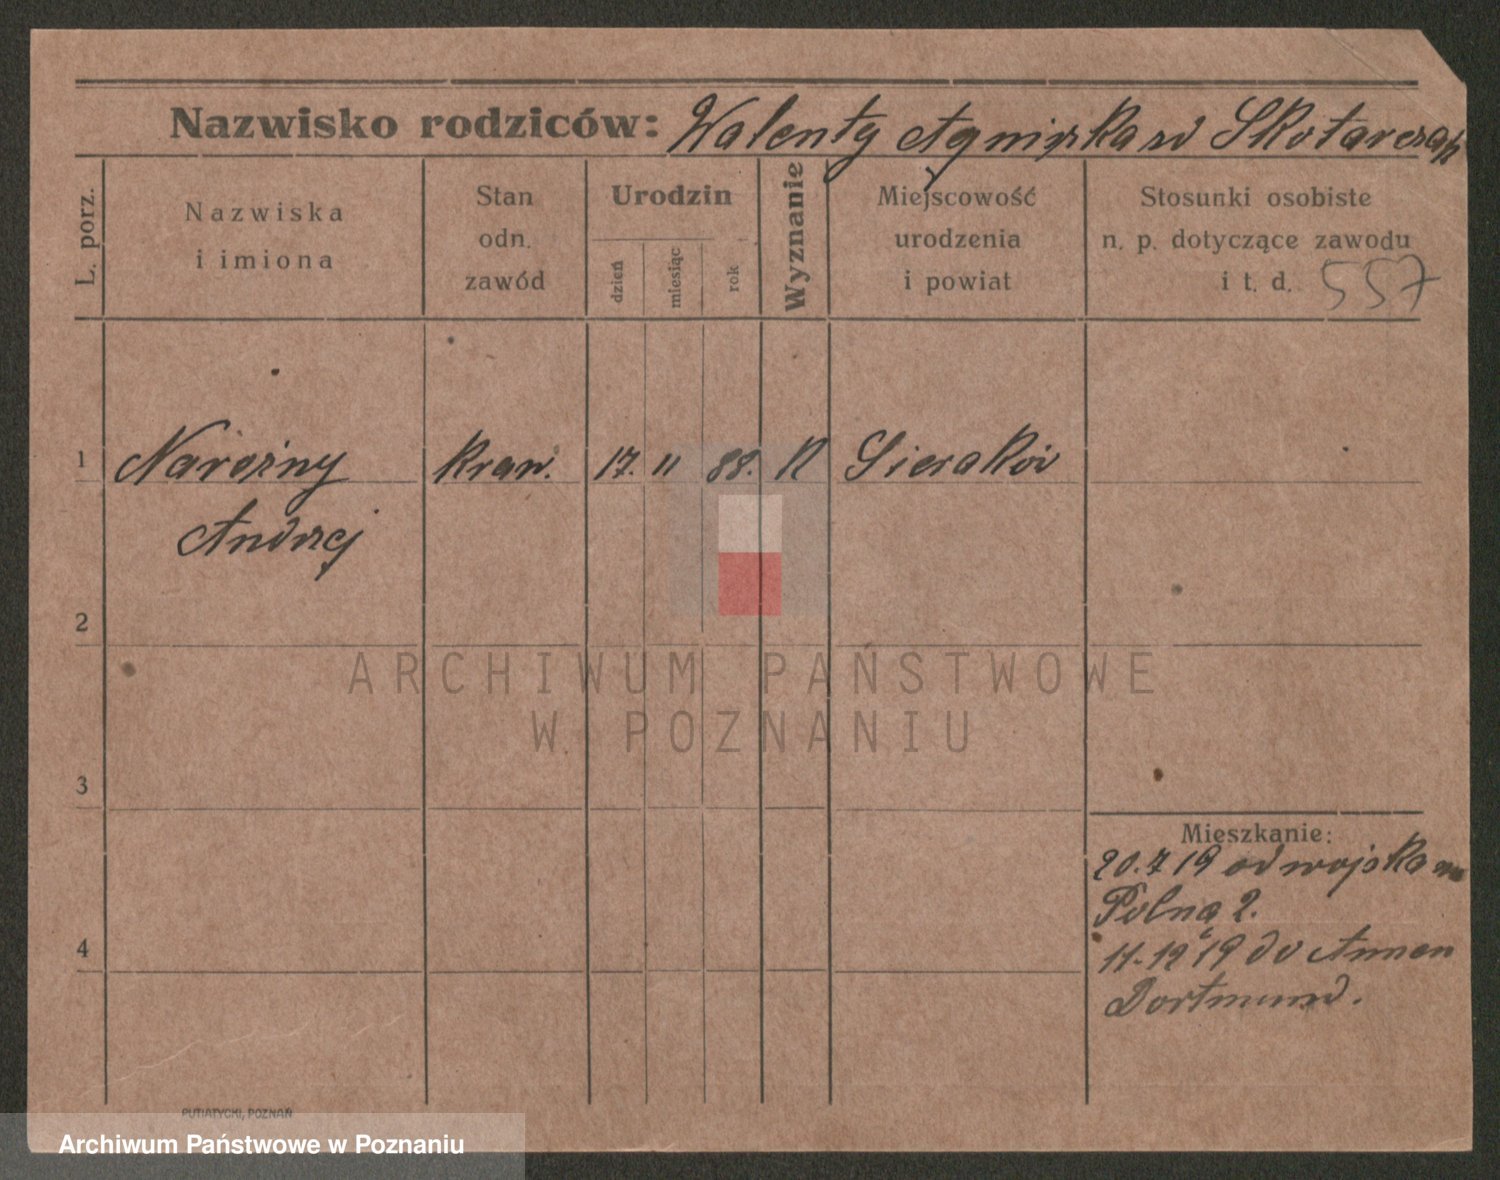 Nazwisko rodziców: Walenty Agnieszka zd Skotarczak
L. porz.
Nazwiska
i imiona
Stan
odn.
zawód
Urodzin
dzień
miesiąc
rok
Wyznanie
Miejscowość
urodzenia
i powiat
Stosunki osobiste
n. p. dotyczące zawodu
i t. d. 557
1 Narożny kraw. 17. 11 88. K Sieraków
Andrzej
2
3
4
Mieszkanie:
20.7 19 od wojska
Polna 2.
11-12 19 do Annen
Dortmund.
ARCHIWUM PAŃSTWOWE
W POZNANIU
PUTIATYCKI, POZNAŃ
Archiwum Państwowe w Poznaniu